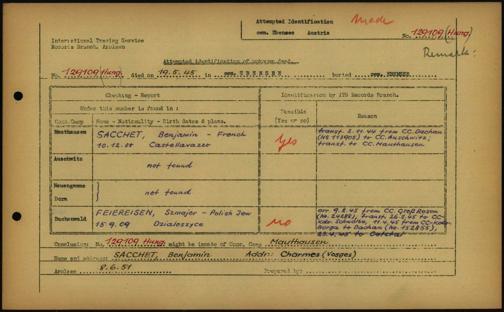 Attempted Identification
cem. Ebensee Austria
Made
No. 129109 (Hung.)
Remark:
International Tracing Service
Records Branch, Arolsen
Attempted identification of unknown dead.
No. 129109 (Hung.) died on 19.5.45 in cem. EBENSEE buried cem. EBENSEE
Checking - Report
Identification by ITS Records Branch.
Under this number is found in :
Possible
(Yes or no)
Reason
Conc.Camp
Name - Nationality - Birth dates & place.
Mauthausen
SACCHET, Benjamin - French
10.12.01 Castellavazzo
Yes
transf. 2.11.44 from CC. Dachau
(No 113905) to CC. Auschwitz,
transf. to CC. Mauthausen.
Auschwitz
not found
Neuengamme
Dora
not found
Buchenwald
FEIEREISEN, Szmajer - Polish Jew
15.9.09 Dzialoszyce
no
arr. 9.2.45 from CC. Groß Rosen
transf. to Dachau
Conclusion: No. 129109 Hung. might be inmate of Conc. Camp Mauthausen
Name and address: SACCHET, Benjamin Addr: Charmes (Vosges)
Arolsen 8.6.51
Prepared by: